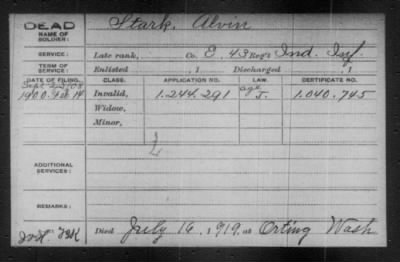 DEAD
NAME OF SOLDIER: Stark, Alvin
SERVICE: Late rank, Co. E, 43 Reg't Ind. Inf.
TERM OF SERVICE: Enlisted , 1 Discharged , 1
DATE OF FILING. CLASS. APPLICATION NO. LAW. CERTIFICATE NO.
1900. Feb 14 Invalid, 1.244.291 age J. 1.040.745
Widow,
Minor,
ADDITIONAL SERVICES:
REMARKS:
Died July 16, 1919, at Orting Wash